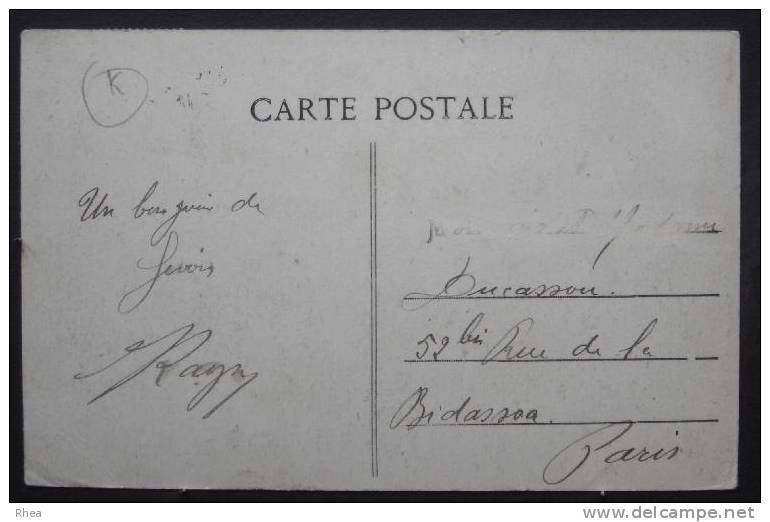 K
CARTE POSTALE
Un bonjour de
Ducassou.
52 bis Rue de la
Bidassoa.
Paris
Rhea
delcampe.net